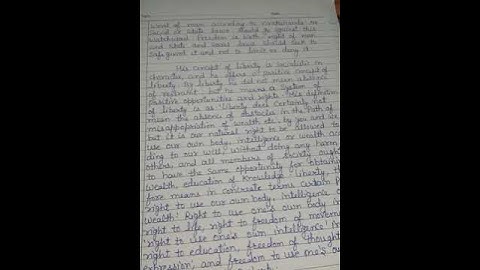 want of man according to
social or state laws should to against this
watchword freedom is birth right of man
and state and social laws should last to
safeguard it and not to limit or deny it
His concept of liberty is socialistic in
character, and he offers a positive concept of
liberty. By liberty he did not mean absence
of restraint but he means a system of
positive opportunities and rights. His definition
of liberty is as 'Liberty does certainly not
mean the absence of obstacles in the path of
misappropriation of wealth etc. by you and me
but it is our natural right to be allowed to
use our own body, intelligence or wealth acc
ding to our will, without doing any harm
others, and all members of society ought
to have the same opportunity for obtaining
wealth, education of knowledge liberty, the
fore means in concrete terms certain
right to use our own body, intelligence
wealth! Right to use one's own body in
right to life, right to freedom of movem
'right to use one's own intelligence'
right to education, freedom of thought
expression, and freedom to use one's